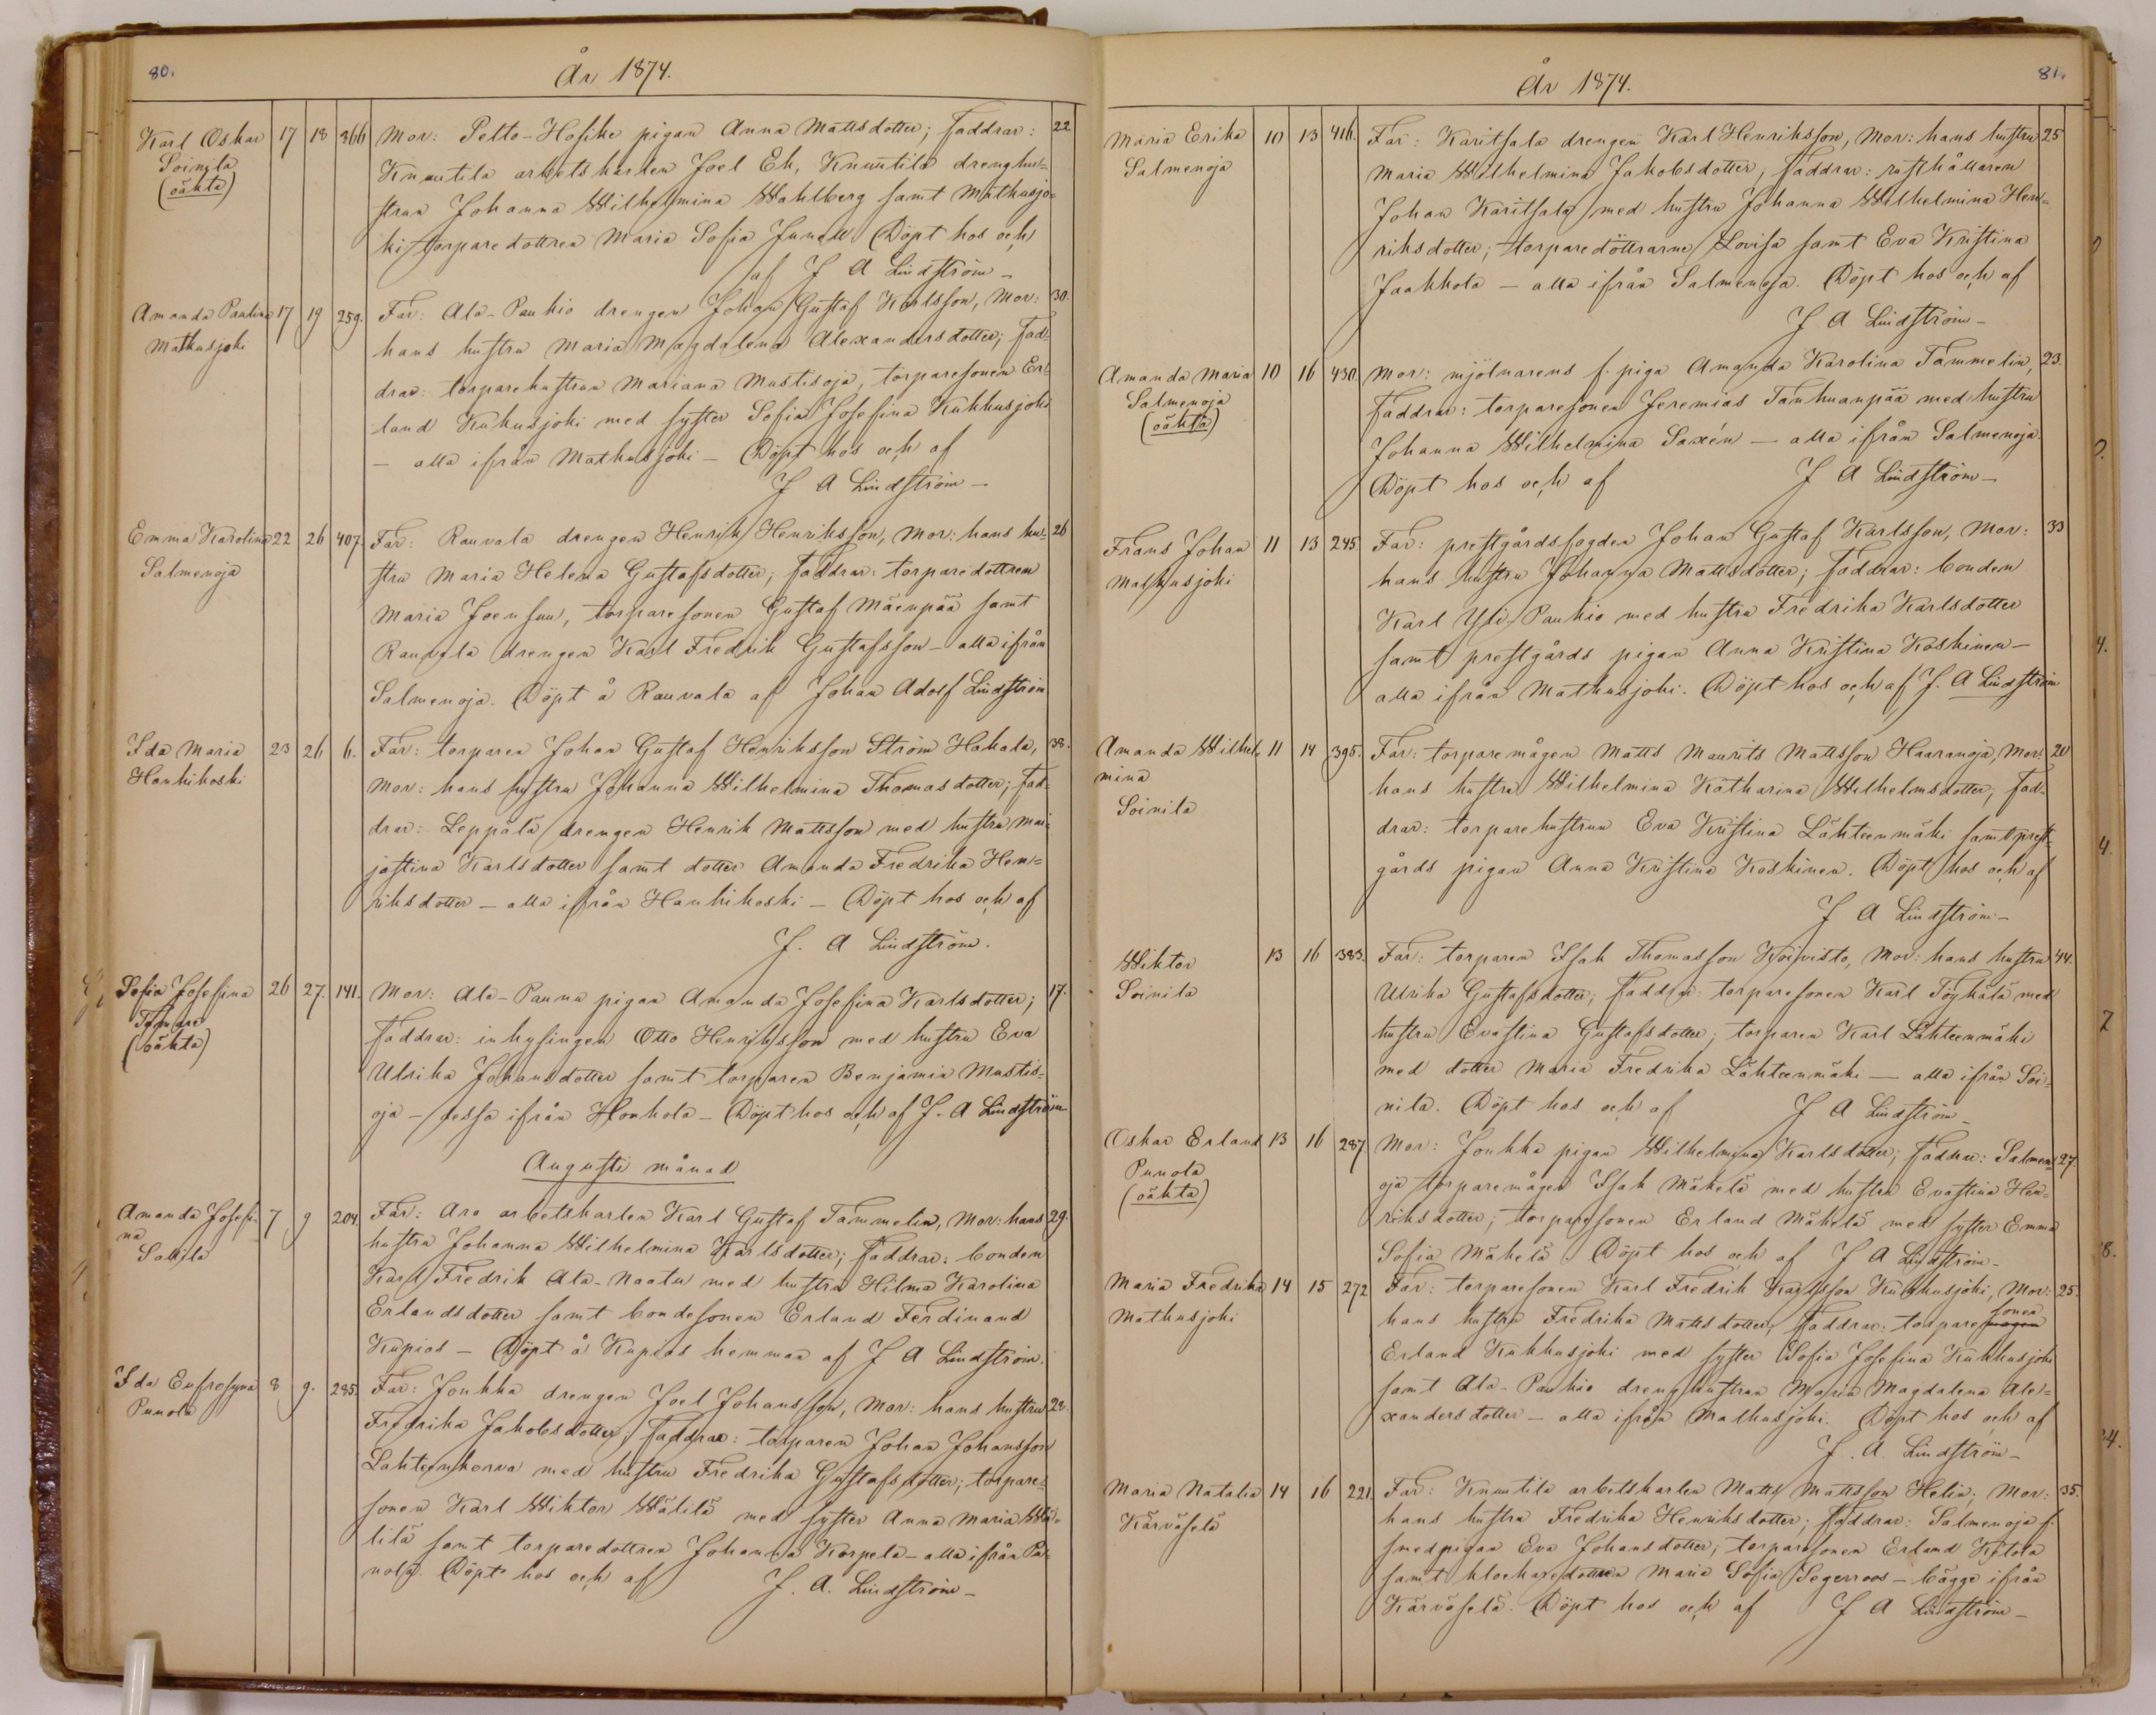 80.
År 1874.
Karl Oskar 17 18 366 Mor: Pelto-Hofike pigan Anna Mattsdotter; faddrar: 22
Soinila
(oäkta)
Knuutila arbetskarlen Joel Ek, Knuutila drenghu-
strun Johanna Wilhelmina Wahlberg samt Mathusjo-
ki torparedottren Maria Sofia Junell. Döpt hos och
af J A Lindström –
Amanda Paulina 17 19 259. Far: Ala-Pauhio drengen Johan Gustaf Karlsson, Mor: 30.
Mathusjoki
hans hustru Maria Magdalena Alexandersdotter; fad-
drar: torparehustrun Mariana Mustisoja, torparesonen Er-
land Kuhusjoki med syster Sofia Josefina Kuhhusjoki
– alla ifrån Mathusjoki – Döpt hos och af
J A Lindström –
Emma Karolina 22 26 407. Far: Rauvala drengen Henrik Henriksson, Mor: hans hu- 26
Salmenoja
stru Maria Helena Gustafsdotter; faddrar: torparedottren
Maria Joensuu, torparesonen Gustaf Mäenpää samt
Rauvala drengen Karl Fredrik Gustafsson – alla ifrån
Salmenoja. Döpt å Rauvala af Johan Adolf Lindström
Ida Maria 23 26 6. Far: torparen Johan Gustaf Henriksson Ström Hakala, 38.
Hanhikoski
Mor: hans hustru Johanna Wilhelmina Thomasdotter; fad-
drar: Leppälä drengen Henrik Mattsson med hustru Mar-
jastina Karlsdotter samt dotter Amanda Fredrika Hen-
riksdotter – alla ifrån Hanhikoski – Döpt hos och af
J. A Lindström.
Sofia Josefina 26 27. 141. Mor: Ala-Panna pigan Amanda Josefina Karlsdotter; 17.
(oäkta)
faddrar: inhysingen Otto Henriksson med hustru Eva
Ulrika Johansdotter samt torparen Benjamin Mustis-
oja – dessa ifrån Honkola – Döpt hos och af J. A Lindström
Augusti månad
Amanda Josefi- 7 9 204. Far: Aro arbetskarlen Karl Gustaf Tammelin, Mor: hans 29.
na
Sakila
hustru Johanna Wilhelmina Karlsdotter; faddrar: bonden
Karl Fredrik Ala-Naatu med hustru Hilma Karolina
Erlandsdotter samt bondesonen Erland Ferdinand
Kupias – Döpt å Kupias hemman af J A Lindström.
Ida Eufrosyna 8 9. 285. Far: Jouhka drengen Joel Johansson, Mor: hans hustru 28.
Punola
Fredrika Jakobsdotter; faddrar: torparen Johan Johansson
Lahteenkorva med hustru Fredrika Gustafsdotter; torpare-
sonen Karl Wiktor Wälilä med syster Anna Maria Wä-
lilä samt torparedottren Johanna Korpela – alla ifrån Pu-
nola. Döpt hos och af J. A. Lindström –
81.
År 1874.
Maria Erika 10 13 416. Far: Karitsala drengen Karl Henriksson, Mor: hans hustru 25
Salmenoja
Maria Wilhelmina Jakobsdotter; faddrar: rusthållaren
Johan Karitsala med hustru Johanna Wilhelmina Hen-
riksdotter; torparedöttrarne Lovisa samt Eva Kristina
Jaakkola – alla ifrån Salmenoja. Döpt hos och af
J A Lindström –
Amanda Maria 10 16 430. Mor: mjölnarens f. piga Amanda Karolina Tammelin, 23.
Salmenoja
(oäkta)
faddrar: torparesonen Jeremias Tanhuanpää med hustru
Johanna Wilhelmina Saxén – alla ifrån Salmenoja
Döpt hos och af J A Lindström –
Frans Johan 11 13 245. Far: prestgårdsfogden Johan Gustaf Karlsson, Mor: 33
Mathusjoki
hans hustru Johanna Mattsdotter; faddrar: bonden
Karl Yli-Pauhio med hustru Fredrika Karlsdotter
samt prestgårds pigan Anna Kristina Koskinen –
alla ifrån Mathusjoki. Döpt hos och af J. A Lindström
Amanda Wilhel- 11 14 395. Far: torparemågen Matts Maurits Mattsson Haaranoja, Mor: 20
mina
Soinila
hans hustru Wilhelmina Katharina Wilhelmsdotter; fad-
drar: torparehustrun Eva Kristina Lähteenmäki samt prest-
gårds pigan Anna Kristina Koskinen. Döpt hos och af
J A Lindström –
Wiktor 13 16 383. Far: torparen Isak Thomasson Koivisto, Mor: hans hustru 44.
Soinila
Ulrika Gustafsdotter; faddrar: torparesonen Karl Töykälä med
hustru Evastina Gustafsdotter; torparen Karl Lähteenmäki
med dotter Maria Fredrika Lähteenmäki – alla ifrån Soi-
nila. Döpt hos och af J A Lindström –
Oskar Erland 13 16 287. Mor: Jouhka pigan Wilhelmina Karlsdotter; faddrar: Salmen- 27.
Punola
(oäkta)
oja torparemågen Isak Mäkelä med hustru Evastina Hen-
riksdotter; torparesonen Erland Mäkelä med syster Emma
Sofia Mäkelä. Döpt hos och af J A Lindström –
Maria Fredrika 14 15 272 Far: torparesonen Karl Fredrik Karlsson Kuhhusjoki, Mor: 25.
Mathusjoki
hans hustru Fredrika Mattsdotter; faddrar: torparesonen
Erland Kuhhusjoki med syster Sofia Josefina Kuhhusjoki
samt Ala-Pauhio drenghustrun Maria Magdalena Ale-
xandersdotter – alla ifrån Mathusjoki. Döpt hos och af
J. A. Lindström –
Maria Natalia 14 16 221. Far: Knuutila arbetskarlen Matts Mattsson Helin; Mor: 35.
Kärväselä
hans hustru Fredrika Henriksdotter; faddrar: Salmenoja f.
smedpigan Eva Johansdotter; torparesonen Erland Kytola
samt klockaredottren Maria Sofia Segerroos – bägge ifrån
Kärväselä. Döpt hos och af J A Lindström –